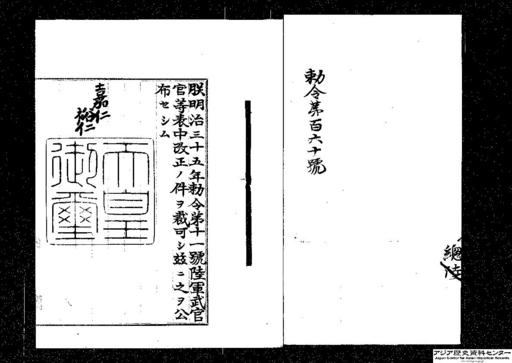 勅令第百六十號
總
陸
朕明治三十五年勅令第十一號陸軍武官
官等表中改正ノ件ヲ裁可シ玆ニ之ヲ公
布セシム
嘉仁
裕仁
天皇
御璽
アジア歴史資料センター
Japan Center for Asian Historical Records